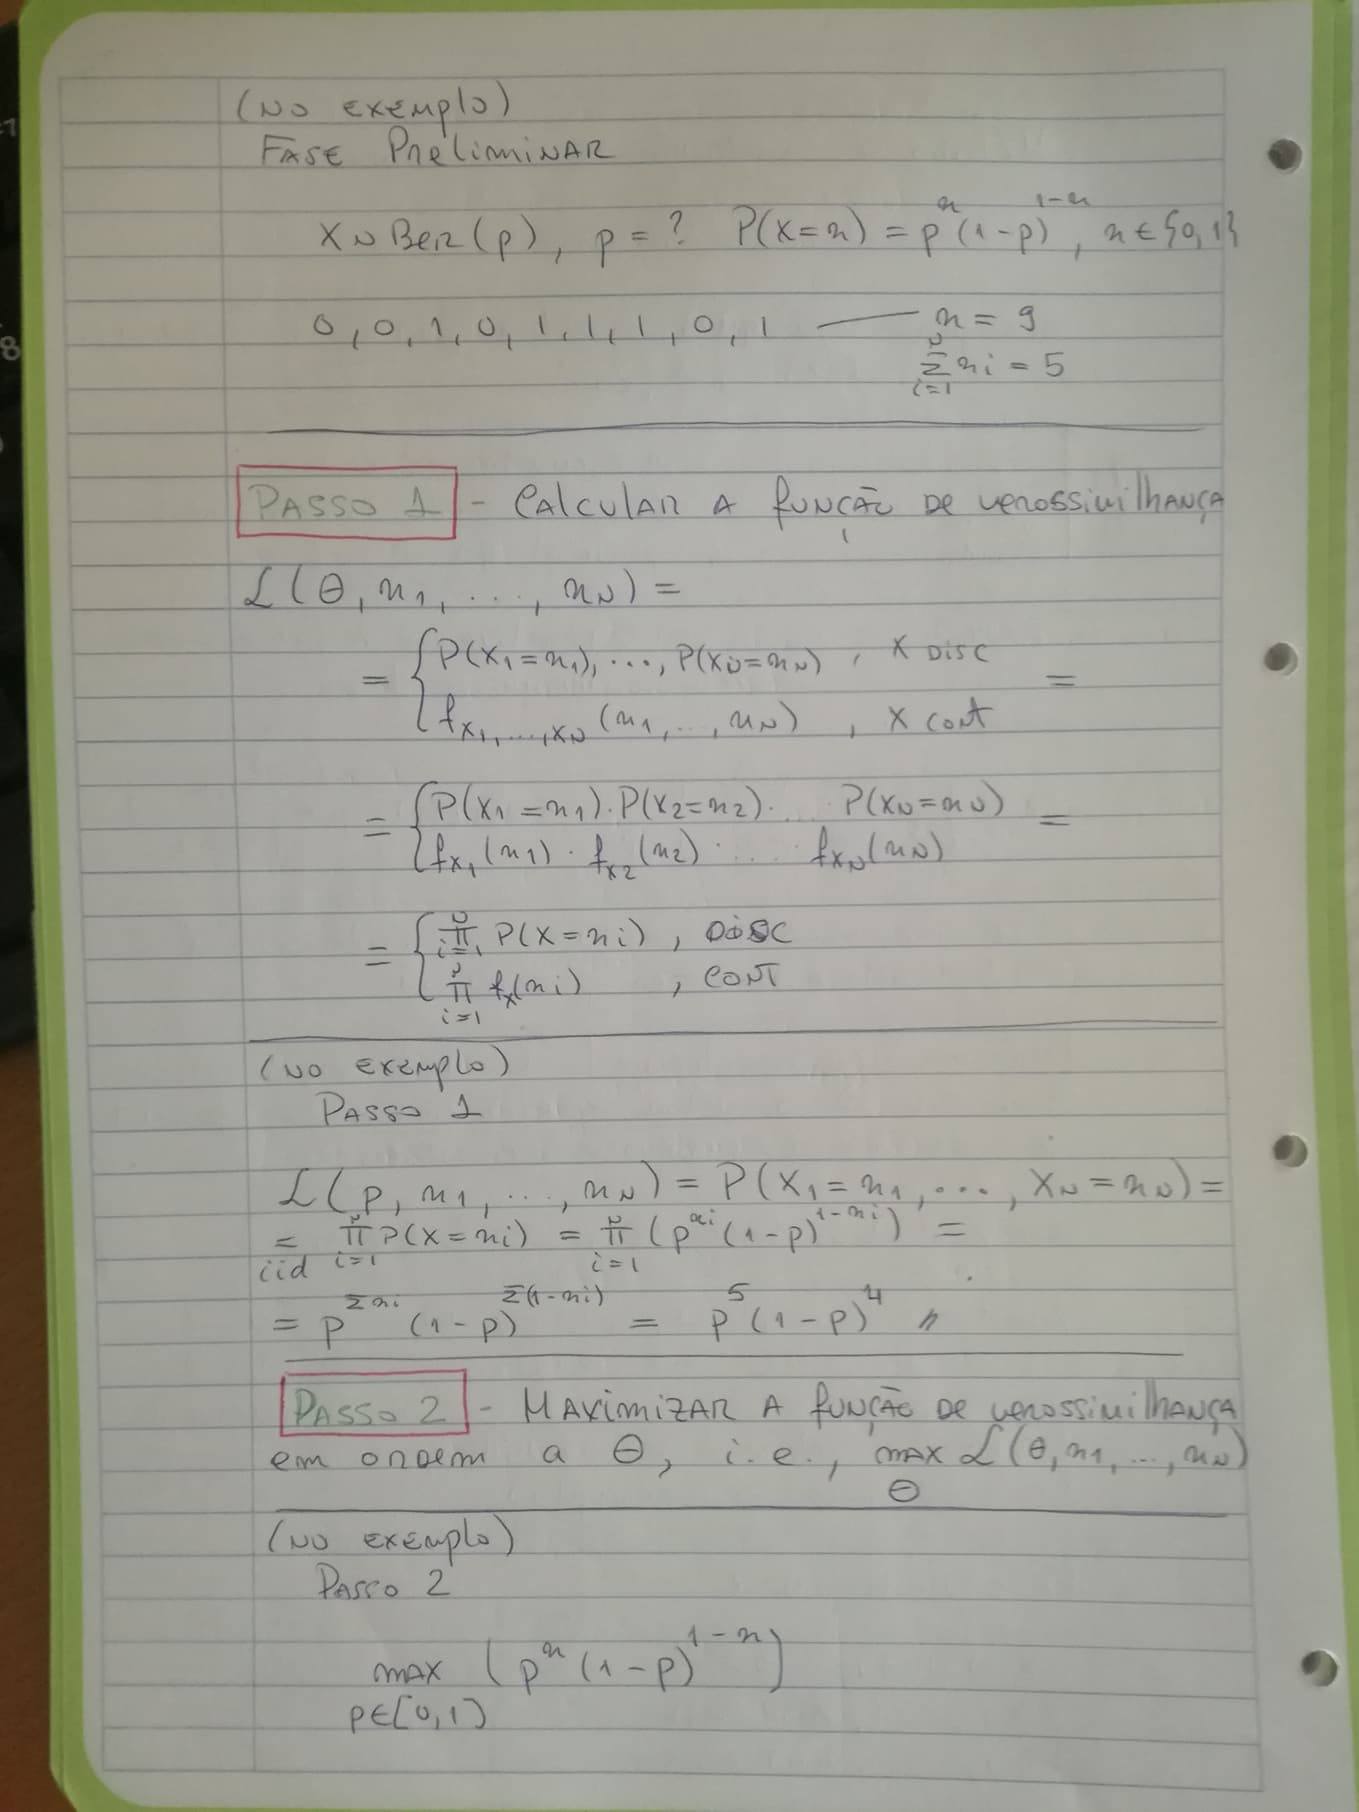 (NO EXEMPLO)
FASE PRELIMINAR
X ~ Ber(p), p = ? P(X=x) = p^x (1-p)^{1-x}, x ∈ {0,1}
0, 0, 1, 0, 1, 1, 1, 0, 1 —— n = 9
\sum_{i=1}^{n} xi = 5
PASSO 1 - CALCULAR A FUNÇÃO DE VEROSSIMILHANÇA
L(θ, x_1, ..., x_N) =
= { P(X_1=x_1), ..., P(X_N=x_N) , X DISC
f_{X_1,...,X_N}(x_1, ..., x_N) , X CONT =
= { P(X_1=x_1) . P(X_2=x_2) . ... P(X_N=x_N) =
f_{X_1}(x_1) . f_{X_2}(x_2) . ... f_{X_N}(x_N)
= { \prod_{i=1}^{N} P(X=xi) , DISC
\prod_{i=1}^{N} f_X(xi) , CONT
(NO EXEMPLO)
PASSO 1
L(p, x_1, ..., x_N) = P(X_1=x_1, ..., X_N=x_N) =
=_{iid} \prod_{i=1}^{N} P(X=xi) = \prod_{i=1}^{N} (p^{xi} (1-p)^{1-xi}) =
= p^{Σxi} (1-p)^{Σ(1-xi)} = p^5 (1-p)^4 //
PASSO 2 - MAXIMIZAR A FUNÇÃO DE VEROSSIMILHANÇA
em ordem a θ, i.e., max_θ L(θ, x_1, ..., x_N)
(NO EXEMPLO)
PASSO 2
max (p^x (1-p)^{1-x})
p∈[0,1]